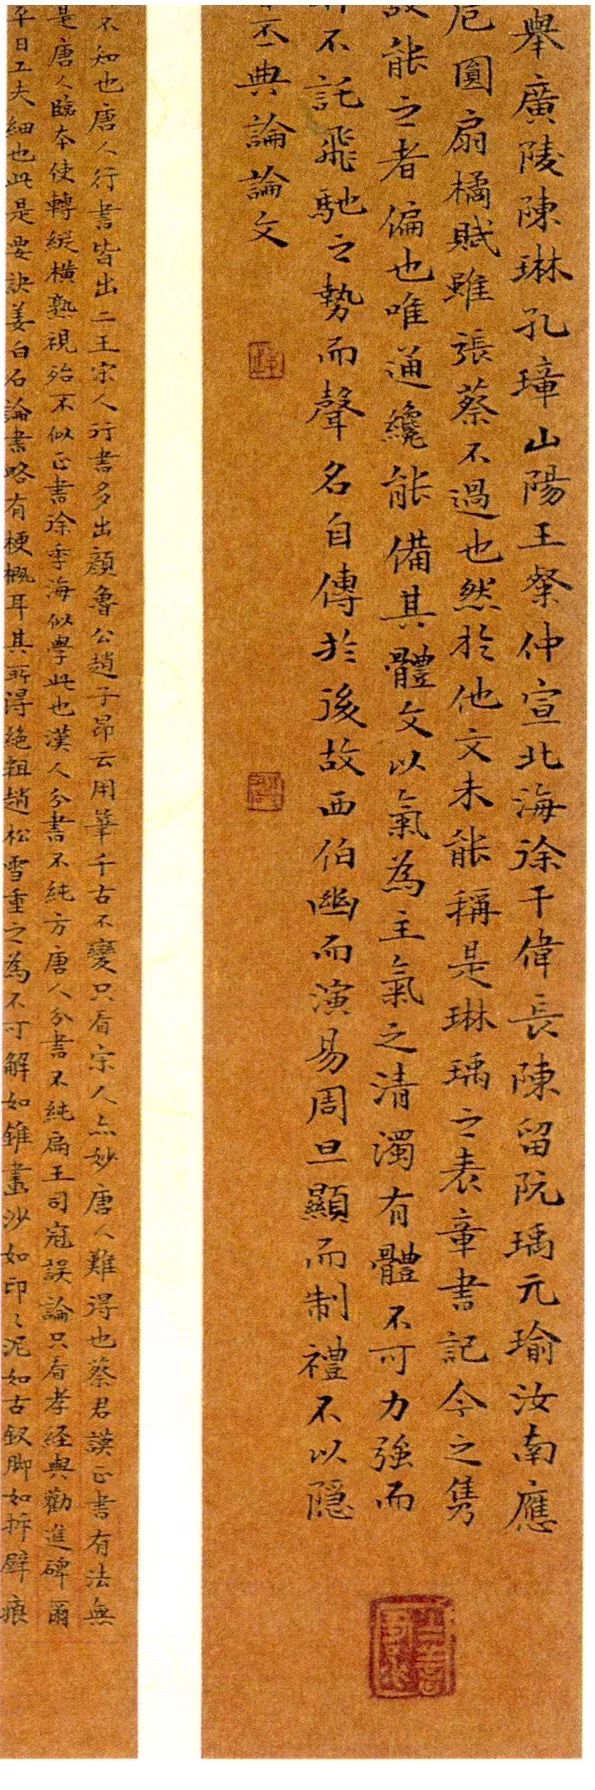 舉廣陵陳琳孔璋山陽王粲仲宣北海徐干偉長陳留阮瑀元瑜汝南應
卮圓扇橘賦雖張蔡不過也然於他文未能稱是琳瑀之表章書記今之雋
故能之者偏也唯通纔能備其體文以氣為主氣之清濁有體不可力強而
不託飛馳之勢而聲名自傳於後故西伯幽而演易周旦顯而制禮不以隱
丕典論論文
不知也唐人行書皆出二王宋人行書多出顏魯公趙子昂云用筆千古不變只看宋人亦妙唐人難得也蔡君謨正書有法無
是唐人臨本使轉縱橫熟視殆不似正書徐季海似學此也漢人分書不純方唐人分書不純扁王司寇誤論只看孝經與勸進碑爾
平日工夫細也此是要訣姜白石論書略有梗概耳其所得絕粗趙松雪重之為不可解如錐畫沙如印〻泥如古釵腳如拆壁痕